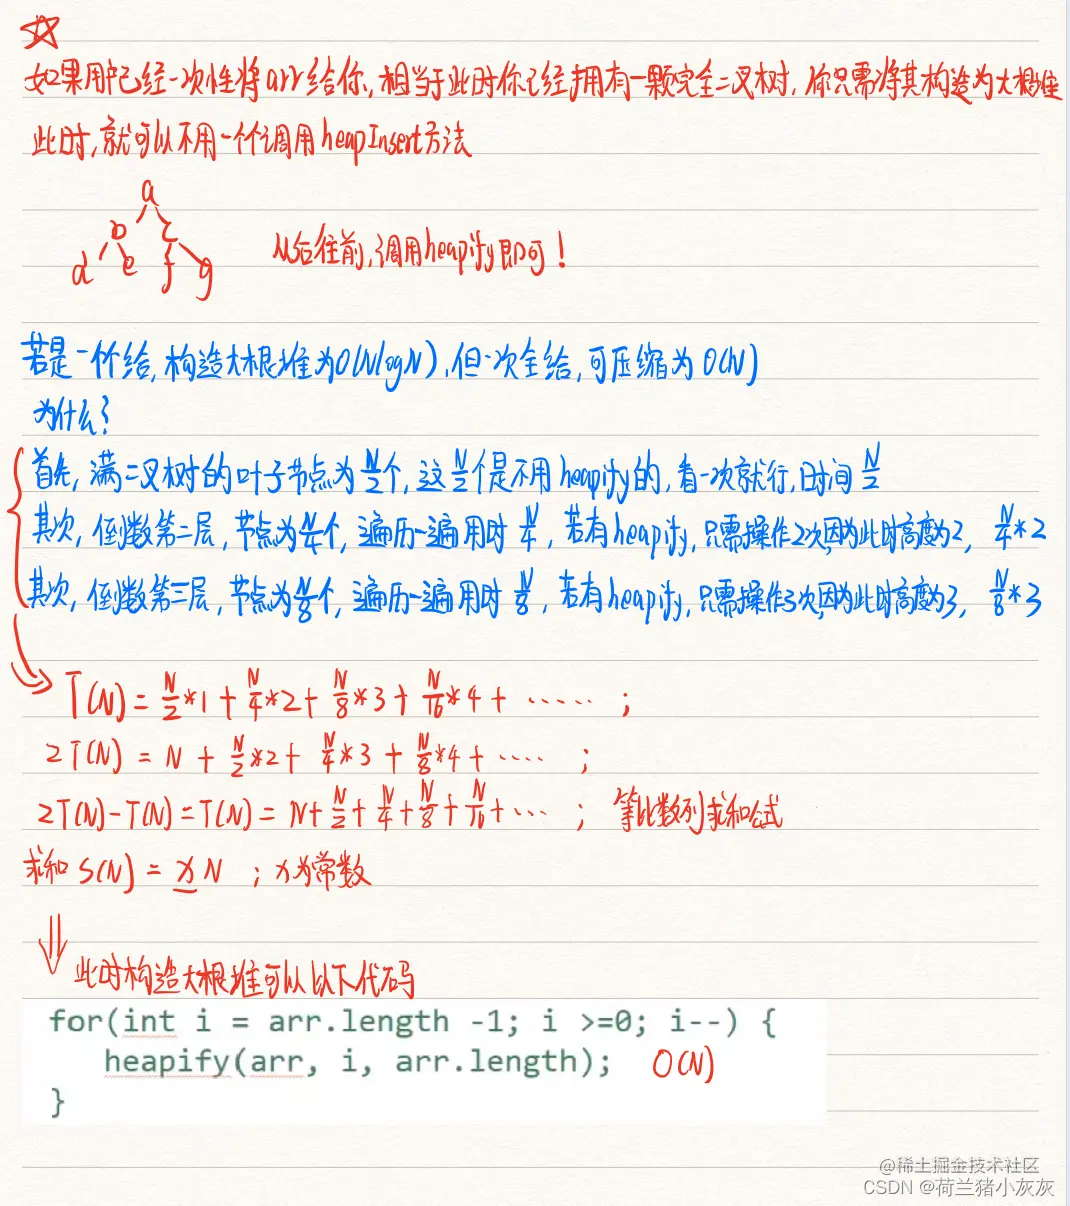 如果用户已经一次性将arr给你,相当于此时你已经拥有一颗完全二叉树,你只需将其构造为大根堆
此时,就可以不用一个个调用heapInsert方法
a
b c
d e f g
从后往前,调用heapify即可!
若是一个个给,构造大根堆为O(NlogN),但一次全给,可压缩为O(N)
为什么?
首先,满二叉树的叶子节点为N/2个,这N/2个是不用heapify的,看一次就行,时间N/2
其次,倒数第二层,节点为N/4个,遍历一遍用时N/4,若有heapify,只需操作2次,因为此时高度为2, N/4*2
其次,倒数第三层,节点为N/8个,遍历一遍用时N/8,若有heapify,只需操作3次,因为此时高度为3, N/8*3
T(N)=N/2*1+N/4*2+N/8*3+N/16*4+······ ;
2T(N)=N+N/2*2+N/4*3+N/8*4+···· ;
2T(N)-T(N)=T(N)=N+N/2+N/4+N/8+N/16+··· ; 等比数列求和公式
求和S(N)=xN ;x为常数
此时构造大根堆可以以下代码
for(int i = arr.length -1; i >=0; i--) {
heapify(arr, i, arr.length); O(N)
}
@稀土掘金技术社区
CSDN @荷兰猪小灰灰